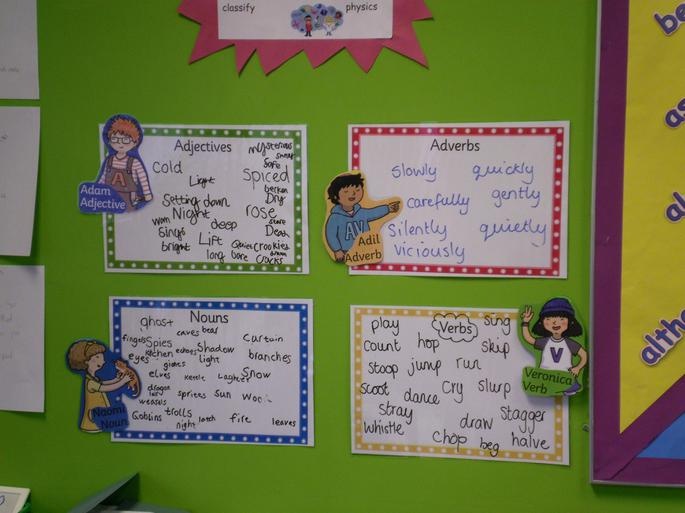 classify physics
Adjectives
Cold
mysterious
Safe
Spiced
Light
Dry
Setting down
Night
rose
deep
bright
Lift
Quiet crookies
long bore cracks
Adam
Adjective
Adverbs
slowly quickly
carefully gently
Silently quietly
Viciously
AV
Adil
Adverb
Nouns
ghost
caves bear
fingers Spies
Curtain
kitchen echoes Shadow
eyes
light
branches
giants
elves kettle Laughter Snow
dragon
sprites Sun
weasels
Goblins trolls
fire
night latch
leaves
Naomi
Noun
Verbs
play sing
count hop skip
stoop jump run
scoot dance Cry slurp
stray draw Stagger
whistle chop beg halve
V
Veronica
Verb
be
as
al
altho